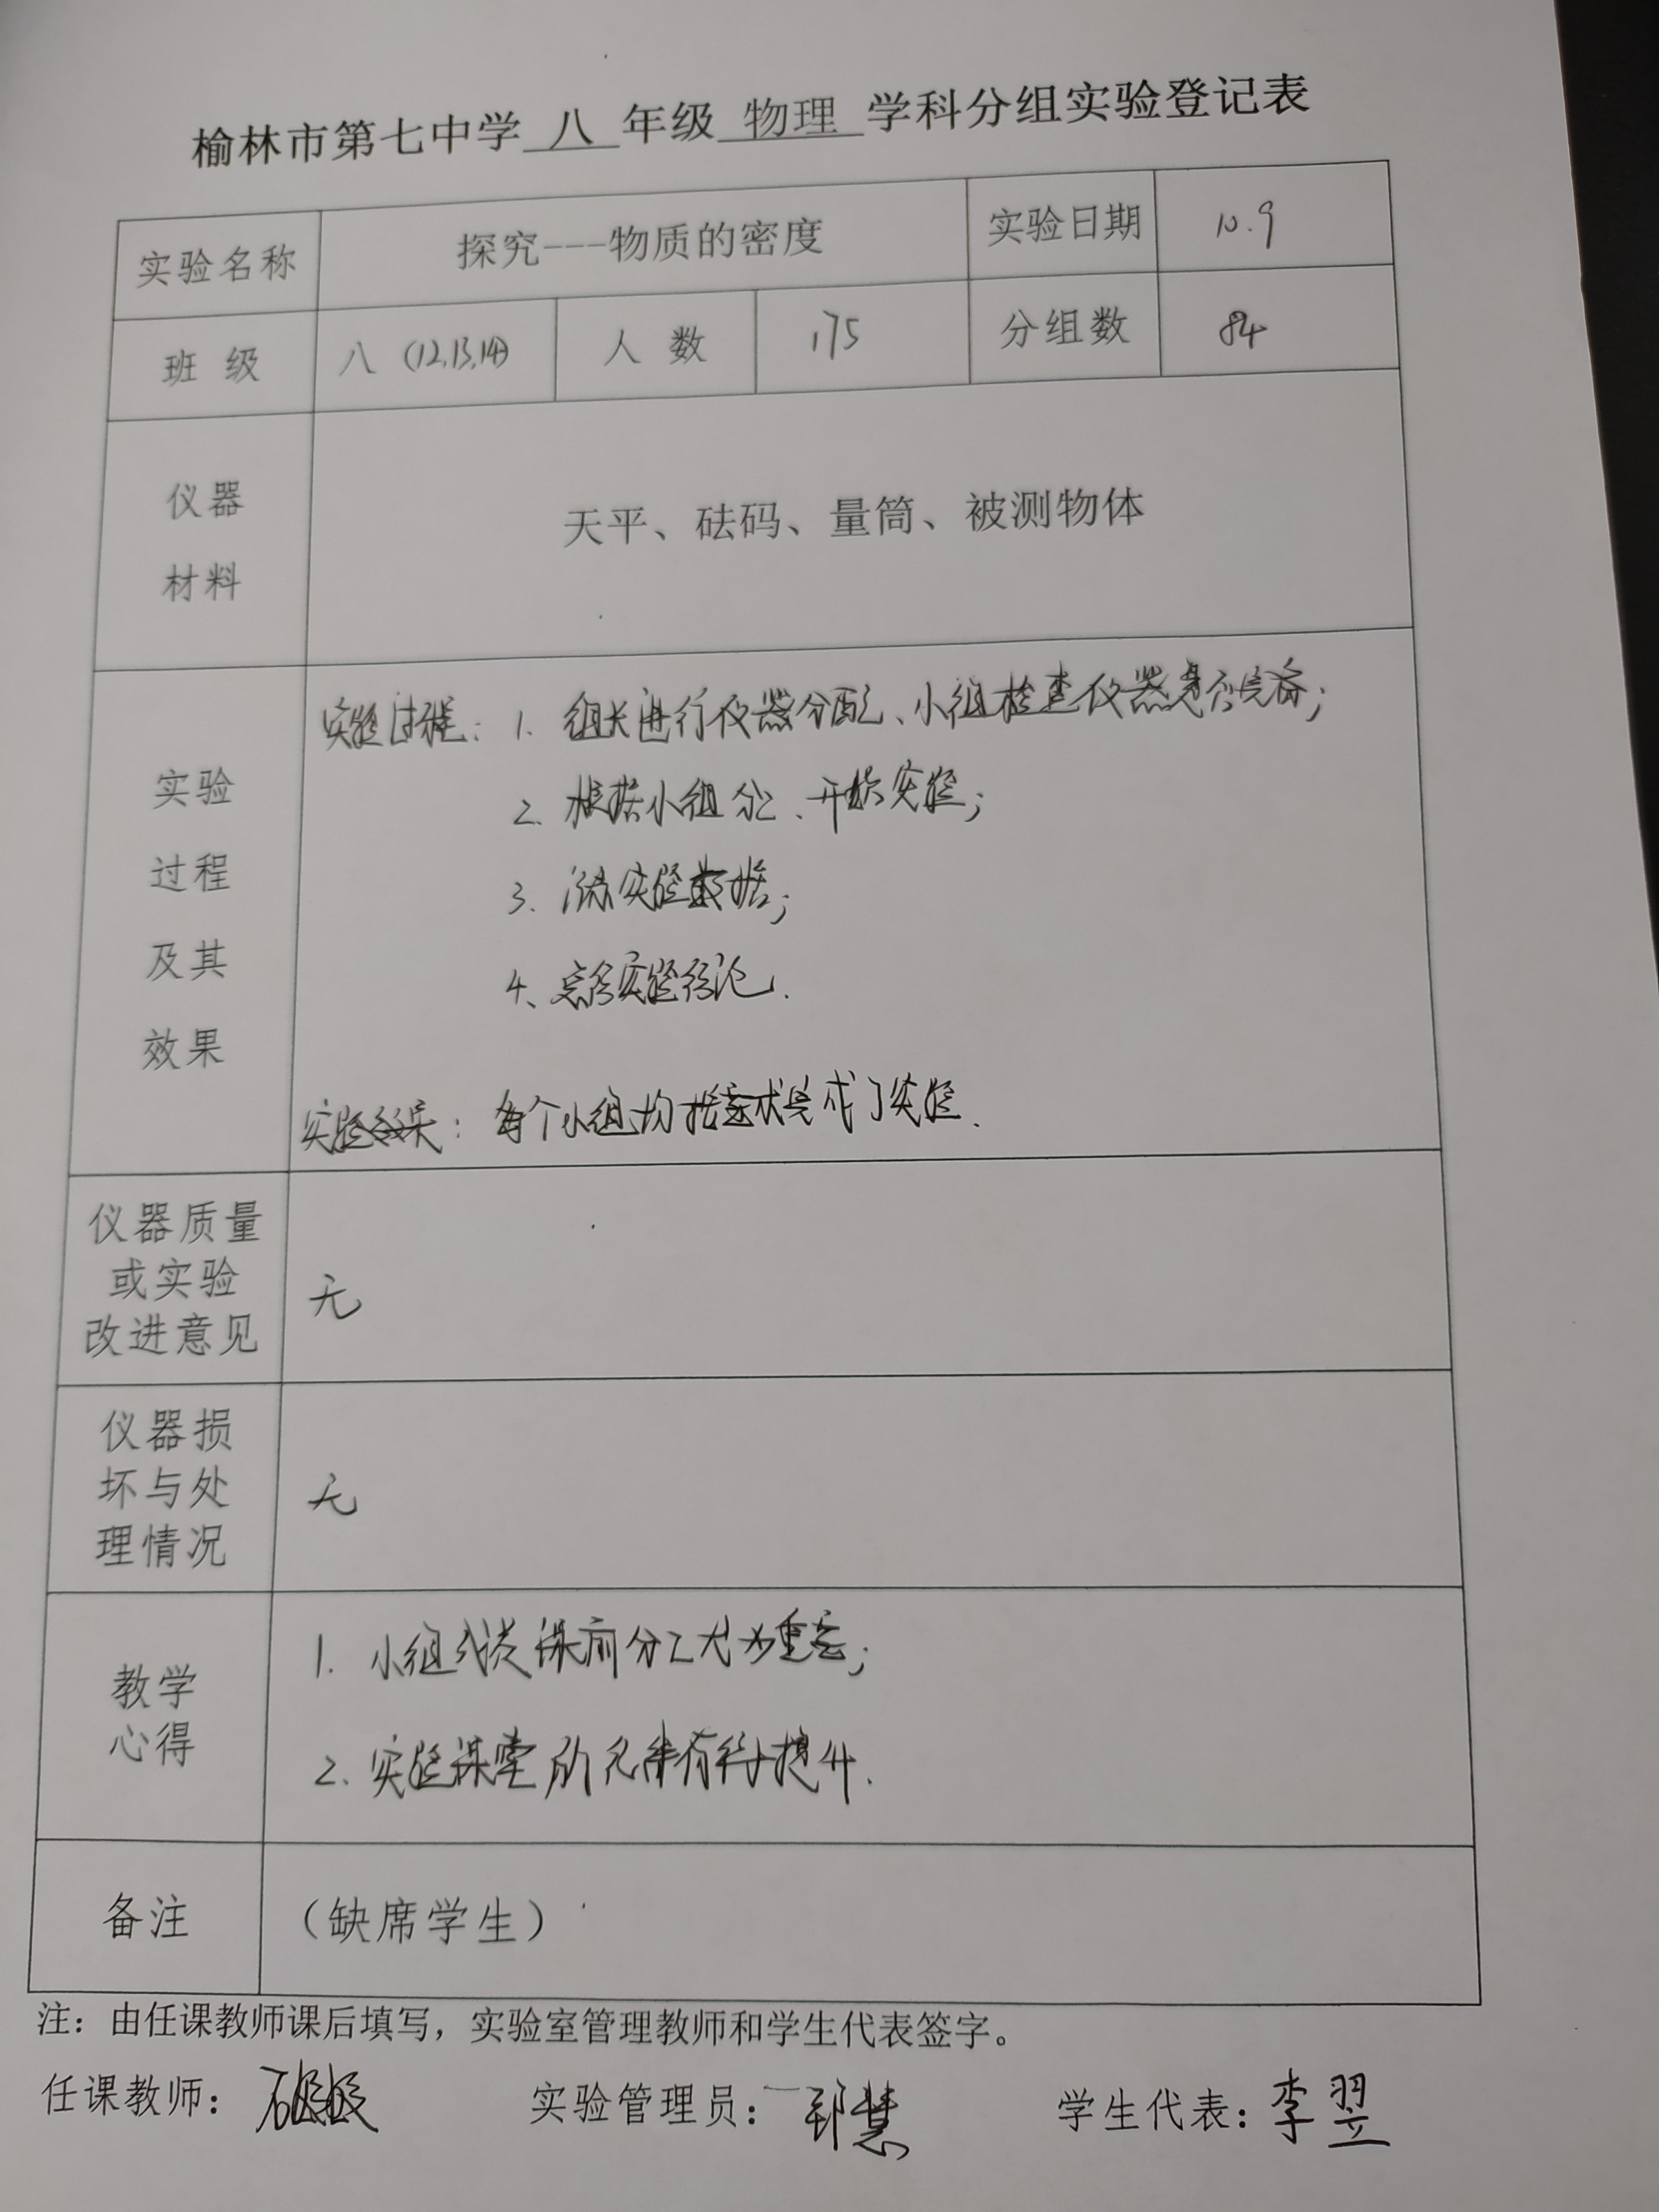 榆林市第七中学 八 年级 物理 学科分组实验登记表
实验名称 探究---物质的密度 实验日期 10.9
班 级 八 (12,13,14) 人 数 175 分组数 84
仪器
材料
天平、砝码、量筒、被测物体
实验
过程
及其
效果
实验过程: 1. 组长进行仪器分配、小组检查仪器是否完备;
2. 根据小组分工、开始实验;
3. 实验数据;
4、完善实验结论.
实验效果: 每个小组均按要求完成了实验.
仪器质量
或实验
改进意见
无
仪器损
坏与处
理情况
无
教学
心得
1. 小组成员课前分工尤为重要;
2. 实验课堂 有待提升.
备注
(缺席学生)
注：由任课教师课后填写，实验室管理教师和学生代表签字。
任课教师： 实验管理员： 慧 学生代表：李翌